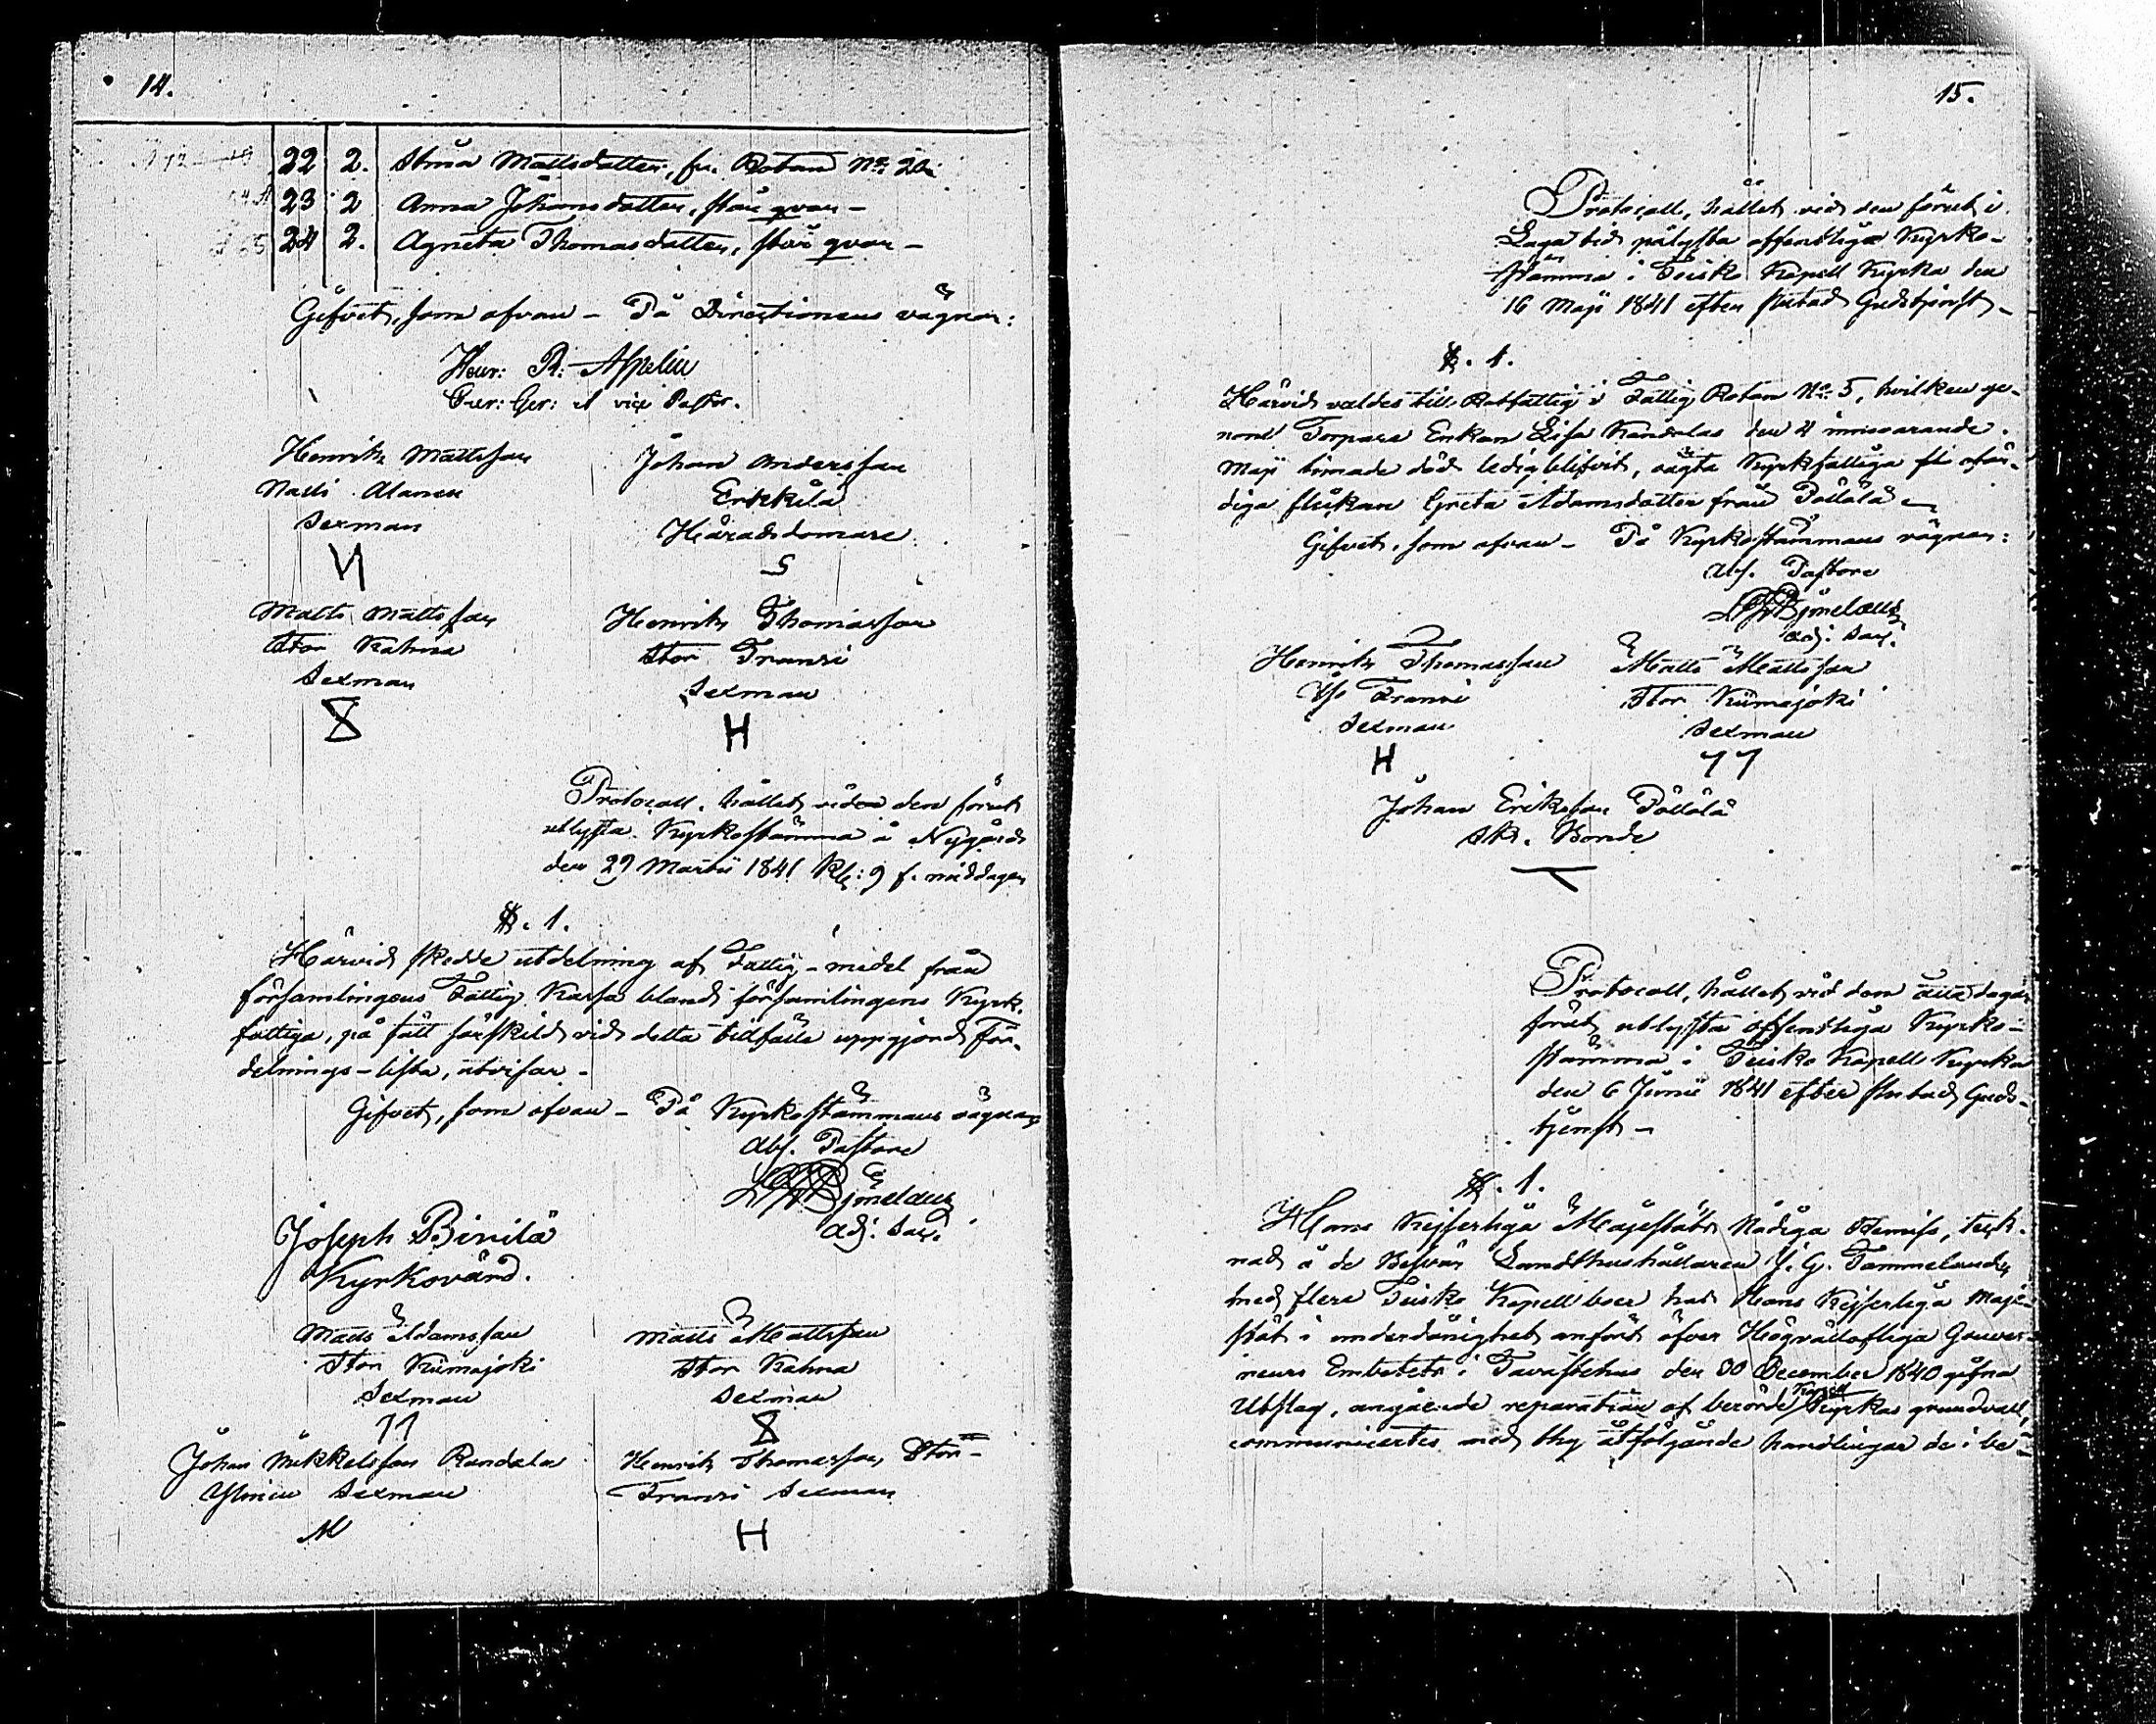 14.
22 2. Stina Mattsdotter, fr. Rotan No: 20.
23 2 Anna Johansdotter, står qvar –
24 2. Agneta Thomasdotter, står qvar –
Gifvet, som ofvan – På Directionens vägnar:
Henr: R: Appelin
vice Pastor.
Henrik Mattsson
Matti Alanen
Sexman
Johan Andersson
Erkkilä
Häradsdomare
Matts Mattsson
Stor Kahna
Sexman
Henrik Thomasson
Stor Transi
Sexman
H
Protocoll, hållet vid den förut
utlysta Kyrkostämma å Nygård
den 29 Martii 1841 Kl: 9 f. middagen
§. 1.
Härvid skedde utdelning af Fattig-medel från
församlingens Fattig Kassa bland församlingens Kyrk-
fattiga, på sätt särskild vid detta tillfälle uppgjord För-
delnings-lista, utvisar –
Gifvet, som ofvan – På Kyrkostämmans vägnar
Abs. Pastore
Björnelaus
Adj. Sac.
Joseph Binilä
Kyrkovärd.
Matts Adamsson
Stor Kiimajoki
Sexman
Matts Mattsson
Stor Kahna
Sexman
Johan Mikkelsson Randala
Ylinen Sexman
M
Henrik Thomasson Stor-
Transi Sexman
H
15.
Protocoll, hållet vid den förut i
Laga tid pålysta offentliga Kyrko-
stämma i Teisko Kapell Kyrka den
16 Maji 1841 efter slutad Gudstjenst –
§. 1.
Härvid valdes till Rotfattig i Fattig Rotan No: 5, hvilken ge-
nom Torpare Enkan Lisa Kandelas den 4 innevarande
Maji timade död ledig blifvit, Kyrkfattiga ofär-
diga flickan Greta Adamsdotter från Pöllölä –
Gifvet, som ofvan – På Kyrkostämmans vägnar:
Abs. Pastore
Björnelaus
Adj. Sac.
Henrik Thomasson
Transi
Sexman
H
Matts Mattsson
Stor Kiimajoki
Sexman
Johan Eriksson Pöllölä
Sk. Bonde
Protocoll, hållet vid den åtta dagar
förut utlysta offentliga Kyrko-
stämma i Teisko Kapell Kyrka
den 6 Junii 1841 efter slutad Guds-
tjenst –
§. 1.
Hans Kejserliga Majestäts Nådiga Remiss, teck-
nad å de Besvär Landthushållaren J. G. Tammelander
med flera Teisko Kapellboer hos Hans Kejserliga Maje-
stät i underdånighet anfört öfver Högvällofliga Gouver-
neurs Embetets i Tavastehus den 30 December 1840 gifna
Utslag, angående reparation af berörde Kapell Kyrkas grundvall,
communicertes med thy åtföljande handlingar de i be-